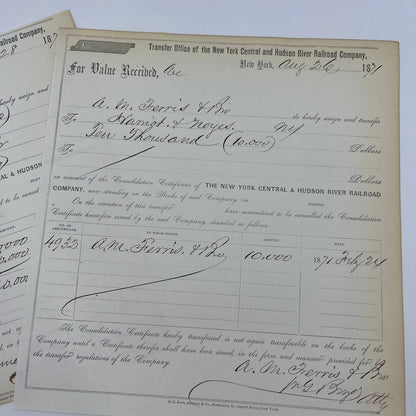 Transfer Office of the New York Central and Hudson River Railroad Company,
New York, Aug 26 1871
For Value Received, We
A. M. Ferris & Bro
do hereby assign and transfer
To Haight & Noyes. NY
Ten Thousand (10.000) Dollars
To
Dollars
in amount of the Consolidation Certificate of THE NEW YORK CENTRAL & HUDSON RIVER RAILROAD
COMPANY, now standing in the Books of said Company, in name
On the execution of this transfer have surrendered to be cancelled the Consolidation
Certificate heretofore issued by the said Company, described as follows:
NO. OF CERTIFICATE. TO WHOM ISSUED. AMOUNT. DATE.
4933 A. M. Ferris & Bro 10.000 1871 July 24
The Consolidation Certificate hereby transferred is not again transferable on the books of the
Company until a Certificate therefor shall have been issued, in the form and manner provided for by
the transfer regulations of the Company.
A. M. Ferris & Bro
Atty
28 187
to hereby assign and transfer
Dollars
Dollars
& HUDSON
name